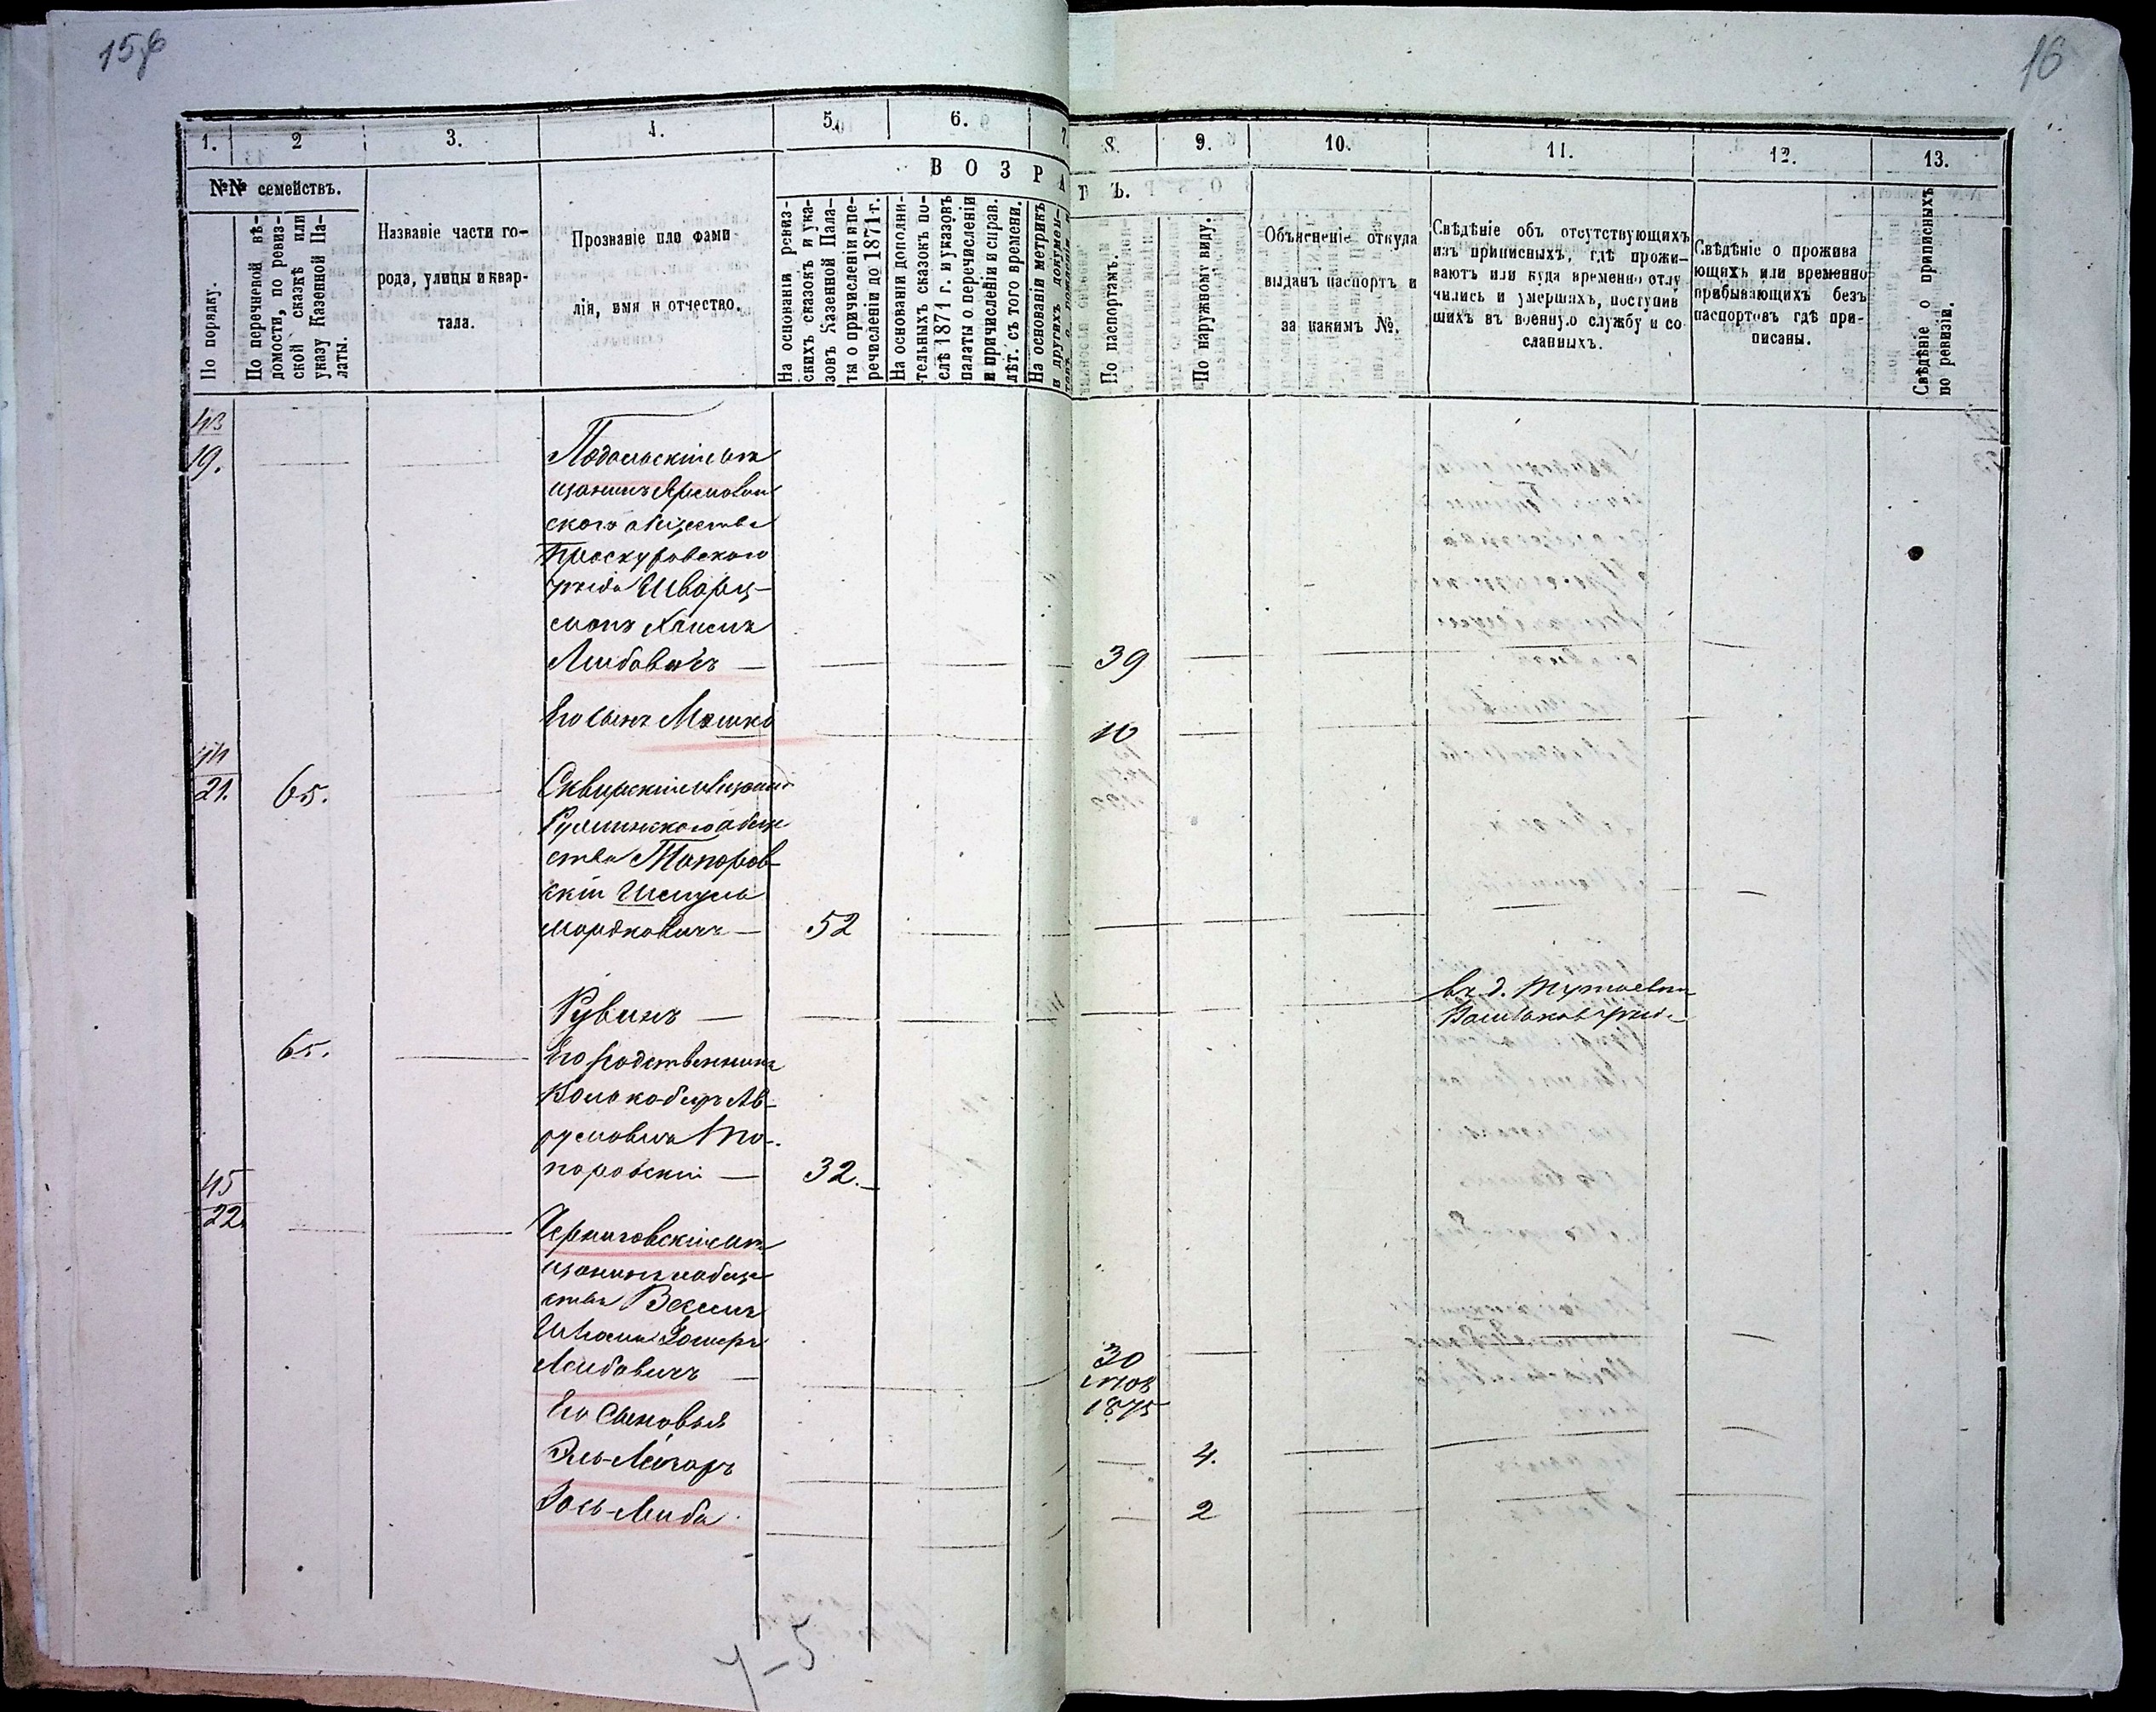 15
16
1.
2
3.
4.
5.
6.
7
8.
9.
10.
11.
12.
13.
№№ семействъ.
В О З Р А
Т Ъ.
По порядку.
По перечневой вѣ-
домости, по ревиз-
ской сказкѣ или
указу Казенной Па-
латы.
Названіе части го-
рода, улицы и квар-
тала.
Прозваніе или фами
лія, имя и отчество.
На основаніи ревиз-
скихъ сказокъ и ука-
зовъ Казенной Пала-
ты о причисленіи и пе-
речисленіи до 1871 г.
На основаніи дополни-
тельныхъ сказокъ по-
слѣ 1871 г. и указовъ
палаты о перечисленіи
и причисленіи и справ.
лѣт. съ того времени.
На основаніи метрикъ
и другихъ докумен-
По паспортамъ.
По наружному виду.
Объясненіе откуда
выданъ паспортъ и
за какимъ №.
Свѣдѣніе объ отсутствующихъ
изъ приписныхъ, гдѣ прожи-
ваютъ или куда временно отлу
чились и умершихъ, поступив
шихъ въ военную службу и со
сланныхъ.
Свѣдѣніе о прожива
ющихъ или временно
прибывающихъ безъ
паспортовъ гдѣ при-
писаны.
Свѣдѣніе о приписныхъ
по ревизіи.
43
19.
Подольскій мѣ
щанинъ
ского общества
Проскуровскаго
уѣзда Шварц-
манъ Хаимъ
Лейбовичъ — 39
Его сынъ Мошко 10
44
21. 65.
Сквирскій мѣщанин
Ружинского обще
ства Топоров-
скій Шмуль
Мордковичъ — 52
Рувинъ —
въ д.
65. Его родственникъ
Волько-Беръ Ав-
румовичъ То-
поровскій — 32.
45
22
Черниговскій мѣ
щанинъ
ства
Лейбовичъ — 30
1875
Его сыновья
4.
Лейба 2
4-5